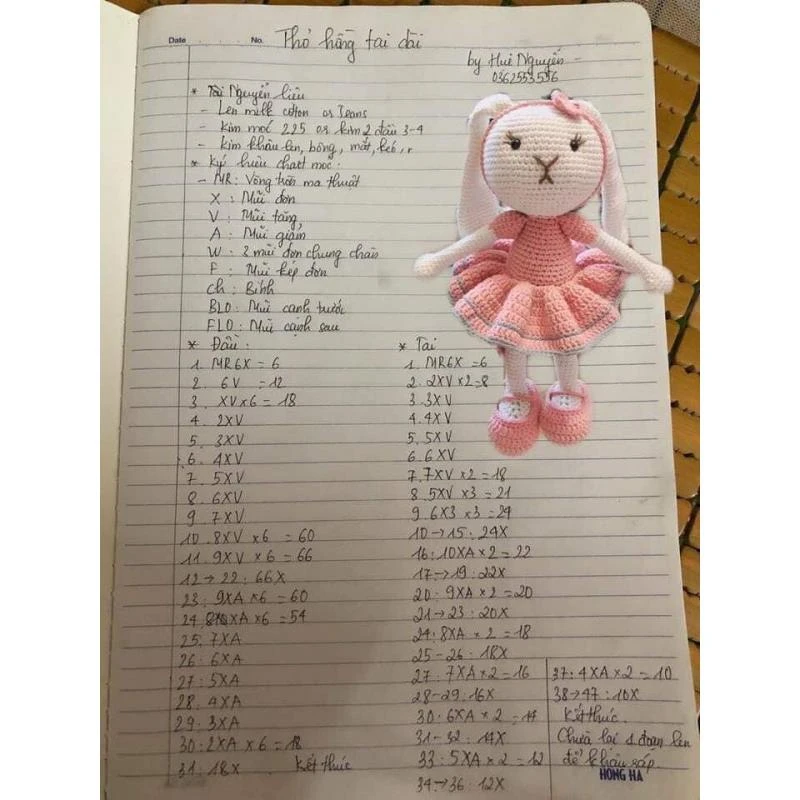 Date No. Thỏ hồng tai dài
by Huê Nguyễn -
0362553556
* Tài Nguyên liệu
- Len milk cotton or Jeans
- Kim móc 225 or kim 2 đầu 3-4
- Kim khâu len, bông, mắt, kéo, r
* Ký hiệu chart móc:
- MR: Vòng tròn ma thuật
X: Mũi đơn
V: Mũi tăng
A: Mũi giảm
W: 3 mũi đơn chung chân
F: Mũi kép đơn
Ch: Bính
BLO: Mũi cạnh trước
FLO: Mũi cạnh sau
* Đầu:
1. MR6X = 6
2. 6V = 12
3. XV x 6 = 18
4. 2XV
5. 3XV
6. 4XV
7. 5XV
8. 6XV
9. 7XV
10. 8XV x 6 = 60
11. 9XV x 6 = 66
12 → 22: 66X
23: 9XA x 6 = 60
24. 8XA x 6 = 54
25. 7XA
26: 6XA
27: 5XA
28. 4XA
29: 3XA
30: 2XA x 6 = 18
31: 18X Kết thúc
* Tai
1. MR6X = 6
2. 2XV x 2 = 8
3. 3XV
4. 4XV
5. 5XV
6. 6XV
7. 7XV x 2 = 18
8. 5XV x 3 = 21
9. 6X3 x 3 = 24
10 → 15: 24X
16: 10XA x 2 = 22
17 → 19: 22X
20: 9XA x 2 = 20
21 → 23: 20X
24: 8XA x 2 = 18
25 - 26: 18X
27: 7XA x 2 = 16
28 - 29: 16X
30: 6XA x 2 = 14
31 - 32: 14X
33: 5XA x 2 = 12
34 → 36: 12X
37: 4XA x 2 = 10
38 → 47: 10X
Kết thúc.
Chừa lại 1 đoạn len
để khâu ráp.
HONG HA